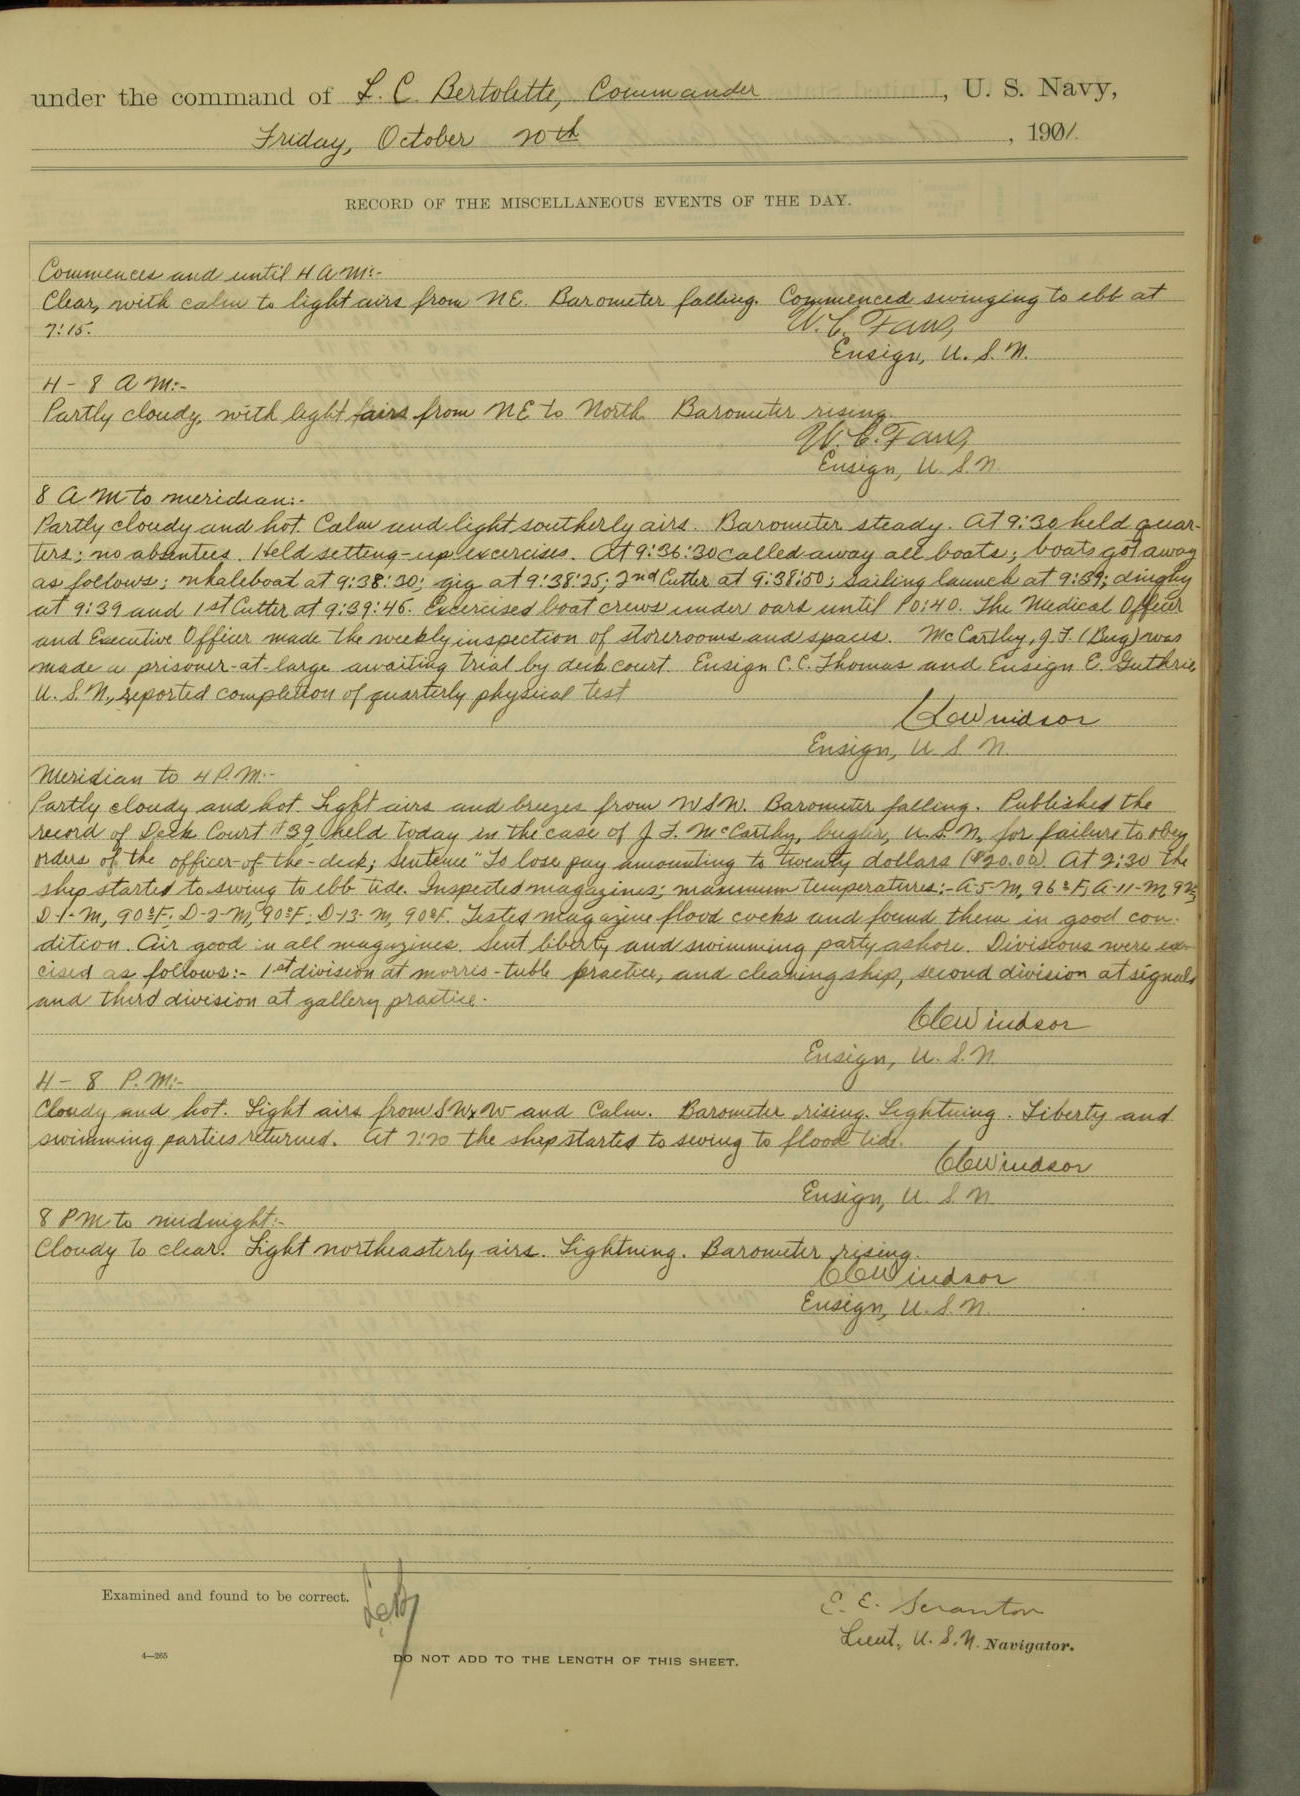 under the command of L. C. Bertolette, Commander, U. S. Navy,
Friday, October 20th, 190
RECORD OF THE MISCELLANEOUS EVENTS OF THE DAY.
Commences and until 4 A M:-
Clear, with calm to light airs from NE. Barometer falling. Commenced swinging to ebb at
W. C.
Ensign, U. S. N.
4 - 8 A M:-
Partly cloudy, with light airs from NE to North Barometer rising.
W. C.
Ensign, U. S. N.
8 A M to meridian:-
Partly cloudy and hot. Calm and light southerly airs. Barometer steady. At 9:30 held quar-
ters; no absentees. Held setting-up exercises. At 9:36:30 called away all boats; boats got away
as follows; whaleboat at 9:38:30; gig at 9:38:25; 2nd Cutter at 9:38:50; sailing launch at 9:39; dinghy
at 9:39 and 1st Cutter at 9:39:45. Exercised boat crews under oars until 10:40. The Medical Officer
and Executive Officer made the weekly inspection of storerooms and spaces. McCarthy, J. F. (Bug) was
made a prisoner-at-large awaiting trial by deck court. Ensign C. C. Thomas and Ensign E. Guthrie,
U. S. N., reported completion of quarterly physical test
Windsor
Ensign, U. S. N.
Meridian to 4 P.M:-
Partly cloudy and hot. Light airs and breezes from WSW. Barometer falling. Published the
record of Deck Court #39, held today in the case of J. F. McCarthy, bugler, U. S. N., for failure to obey
orders of the officer-of-the-deck; sentence "To lose pay amounting to twenty dollars ($20.00). At 2:30 the
ship started to swing to ebb tide. Inspected magazines; maximum temperatures:- A-5-M, 96°F; A-11-M,
D-1-M, 90°F; D-2-M, 90°F; D-13-M, 90°F. Tested magazine flood cocks and found them in good con-
dition. Air good in all magazines. Sent liberty and swimming party ashore. Divisions were exer-
cised as follows:- 1st division at morris-tube practice, and cleaning ship, second division at signals
and third division at gallery practice.
Windsor
Ensign, U. S. N.
4 - 8 P. M:-
Cloudy and hot. Light airs from SWxW and Calm. Barometer rising. Lightning. Liberty and
swimming parties returned. At 7:20 the ship started to swing to flood tide.
Windsor
Ensign, U. S. N.
8 PM to midnight:-
Cloudy to clear. Light northeasterly airs. Lightning. Barometer rising.
Windsor
Ensign, U. S. N.
Examined and found to be correct.
E. E. Scranton
Lieut., U. S. N. Navigator.
4—265
DO NOT ADD TO THE LENGTH OF THIS SHEET.